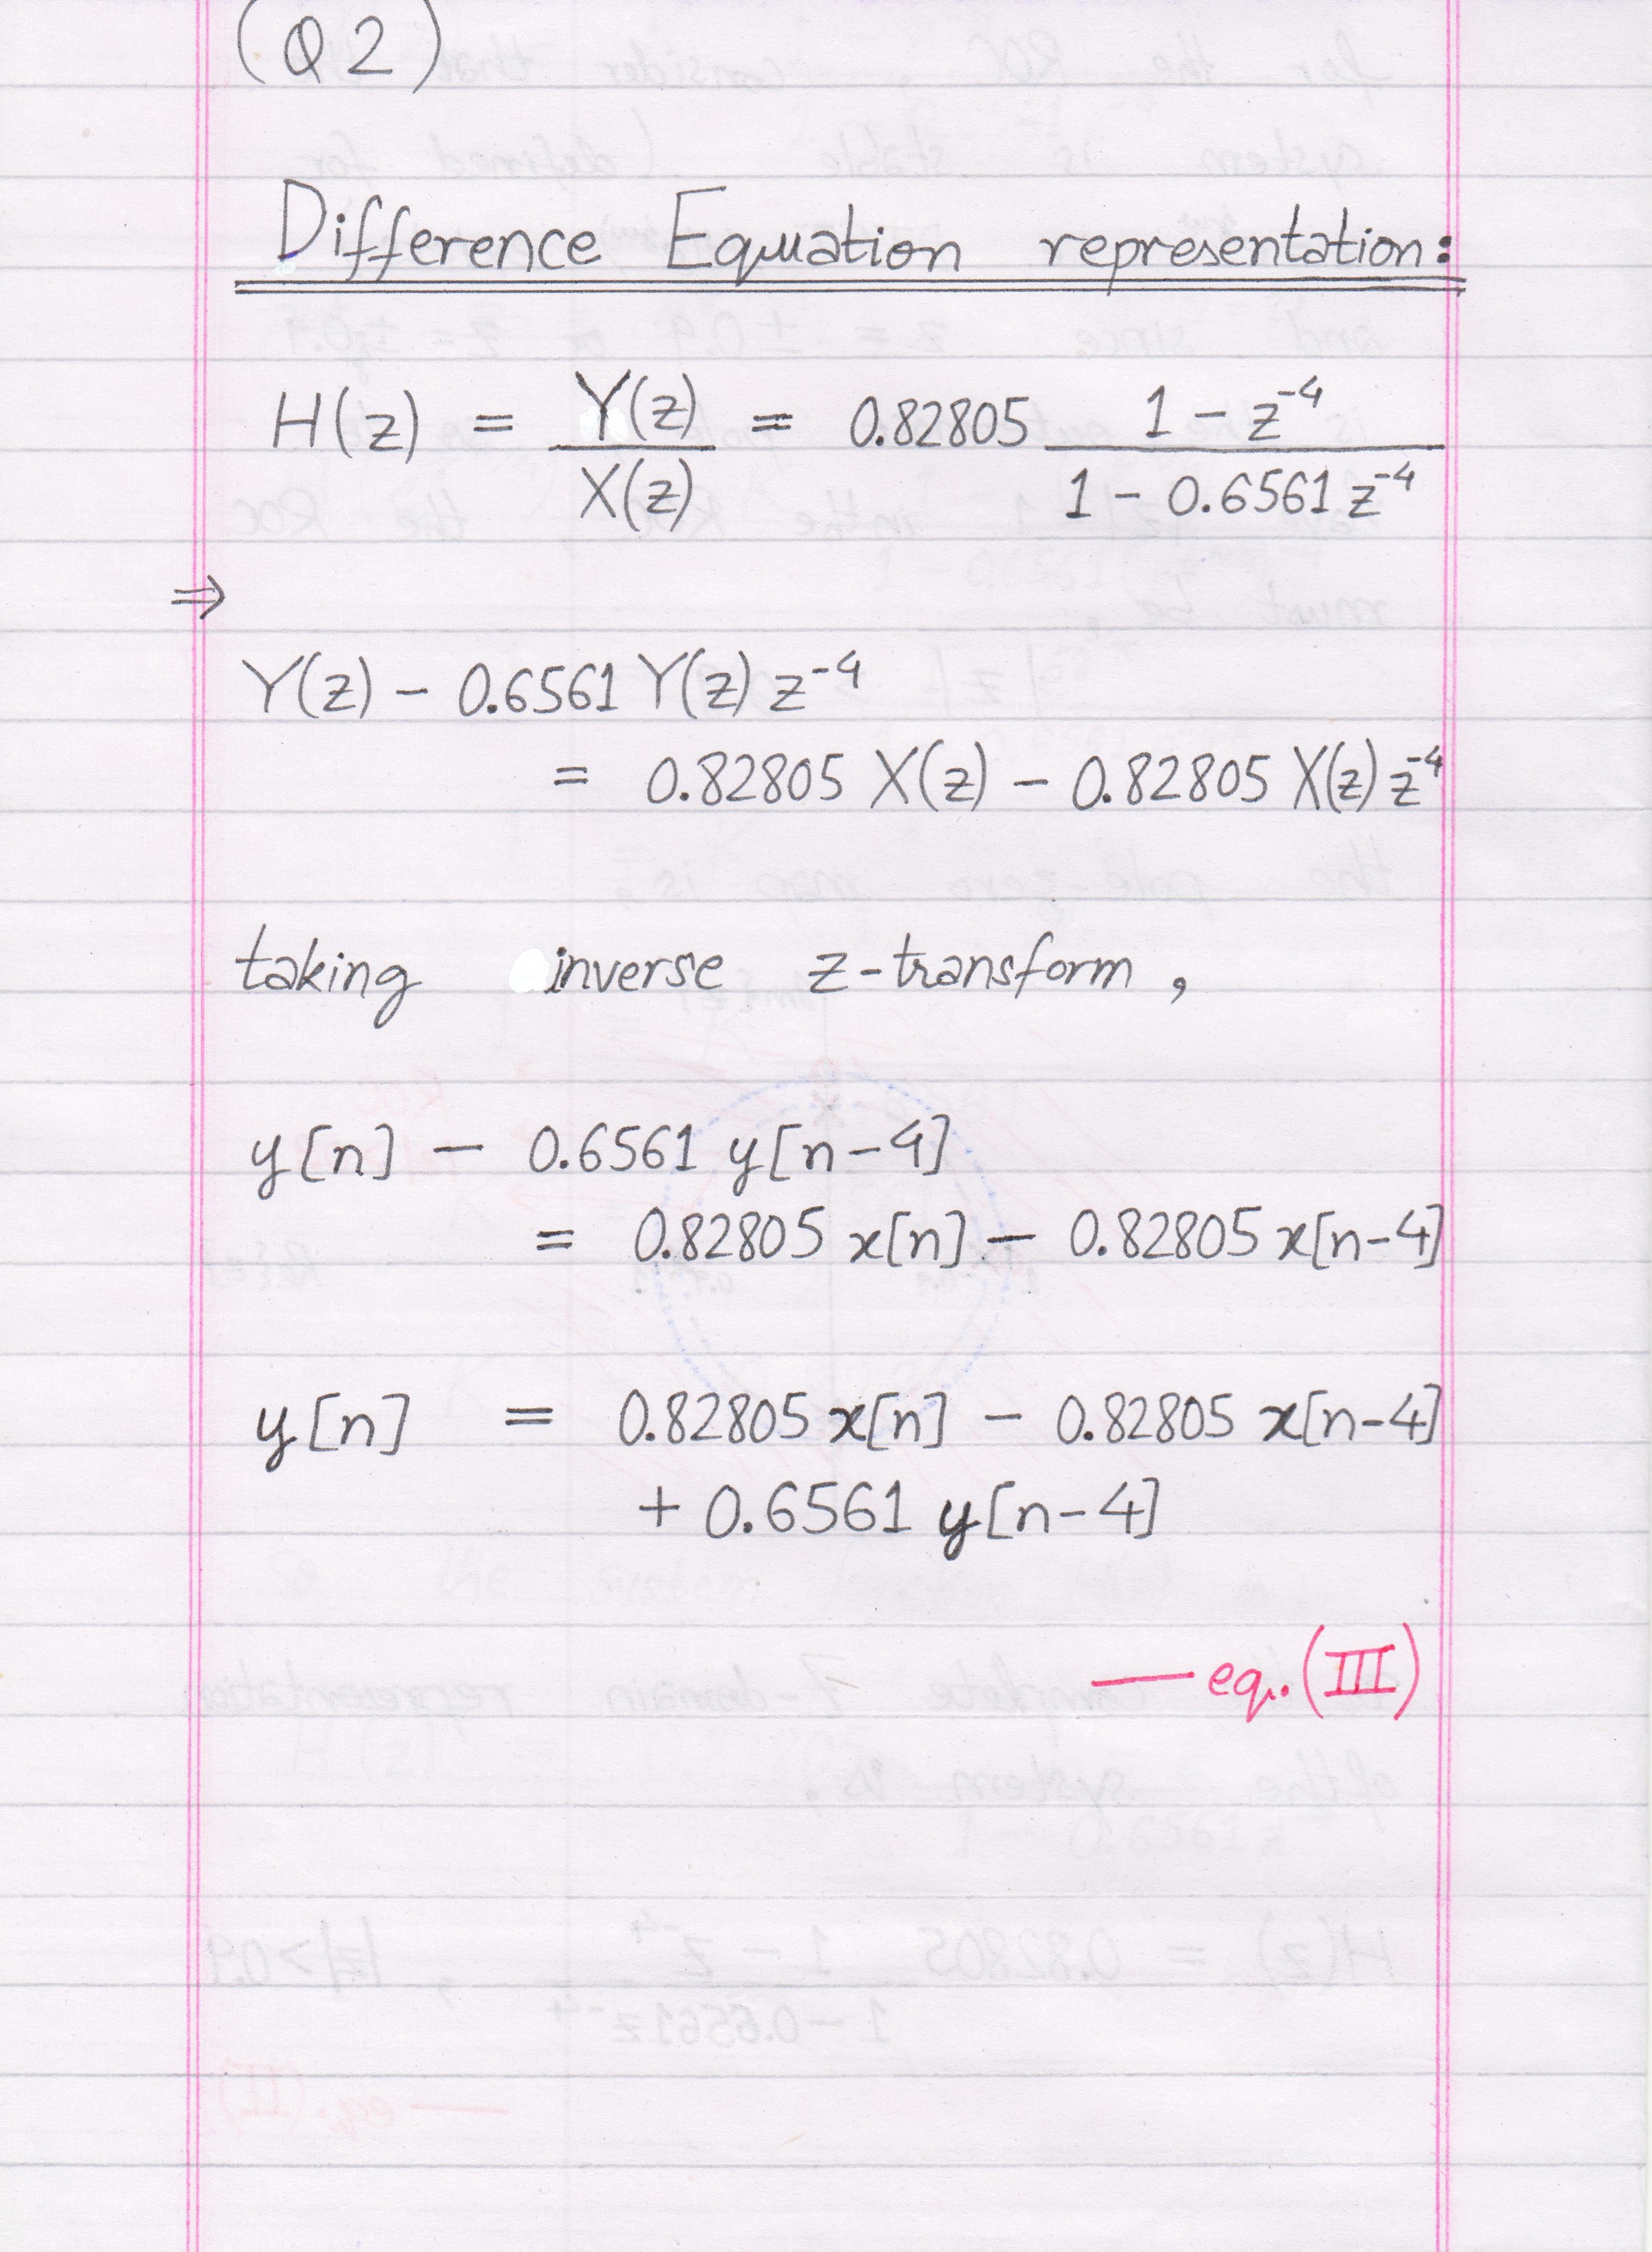 (Q2)
Difference Equation representation:
H(z) = Y(z)/X(z) = 0.82805 (1 - z^-4)/(1 - 0.6561 z^-4)
⇒
Y(z) - 0.6561 Y(z) z^-4
= 0.82805 X(z) - 0.82805 X(z) z^-4
taking inverse z-transform,
y[n] - 0.6561 y[n-4]
= 0.82805 x[n] - 0.82805 x[n-4]
y[n] = 0.82805 x[n] - 0.82805 x[n-4]
+ 0.6561 y[n-4]
— eq. (III)